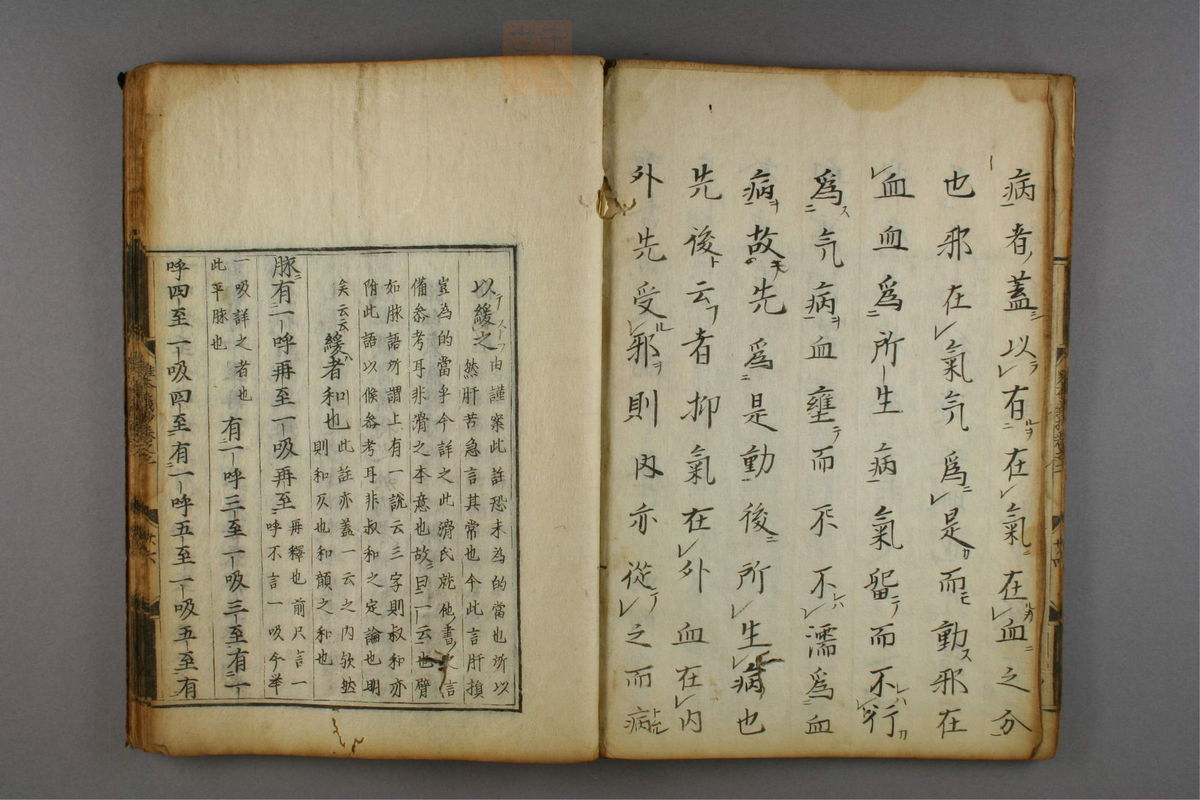 病者蓋以有在氣在血之分
也邪在氣氣為是而動邪在
血血為所生病氣留而不行
為氣病血壅而不濡為血
病故先為是動後所生病也
先後云者抑氣在外血在内
外先受邪則内亦從之而病
以緩之由謹案此註恐未為的當也所以
然肝苦急言其常也今此言肝損
豈為的當乎今詳之此滑氏就他書之言
備参考耳非滑之本意也故曰一云也臂
如脉語所謂上有一說云三字則叔和亦
附此語以候參考耳非叔和之定論也明
矣云云緩者和也此註亦蓋一云之内欤然
則和仄也和顔之和也
脉有一呼再至一吸再至再釋也前只言一
呼不言一吸今舉
一吸詳之者也有一呼三至一吸三至有一
此平脉也
呼四至一吸四至有一呼五至一吸五至有